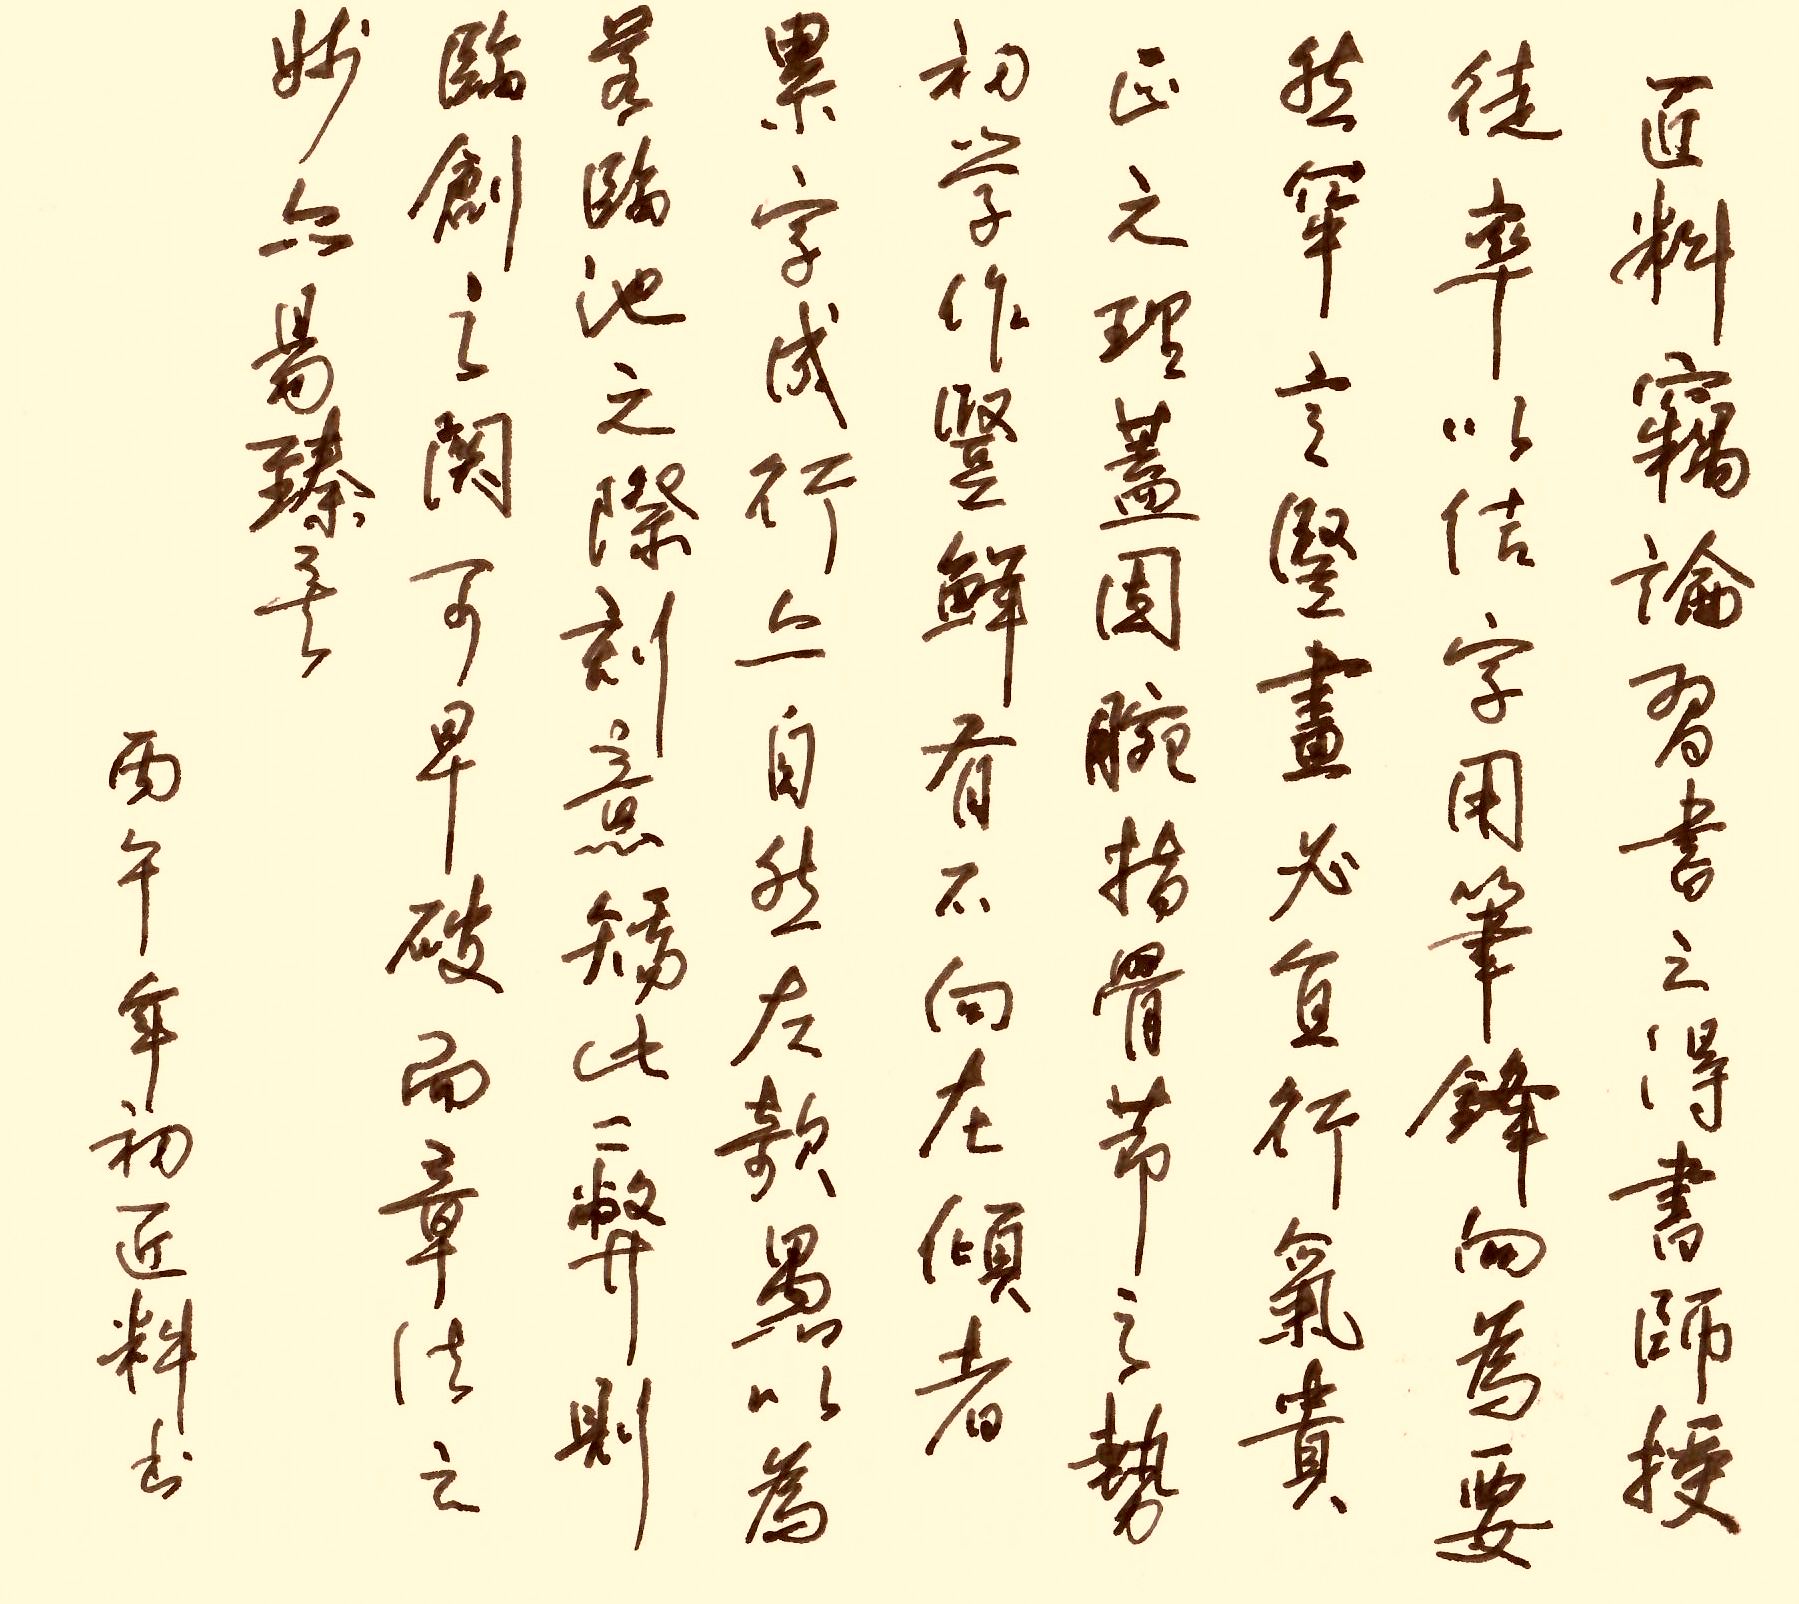 匠料竊論習書之得書師授
徒率以结字用筆鋒向為要
然罕言豎畫必直行氣貴
正之理蓋因腕指骨节之勢
初学作豎鮮有不向左傾者
累字成行亦自然左欹愚以為
若臨池之際刻意矯此二弊則
臨創之関可早破而章法之
妙亦易臻矣
丙午年初匠料书